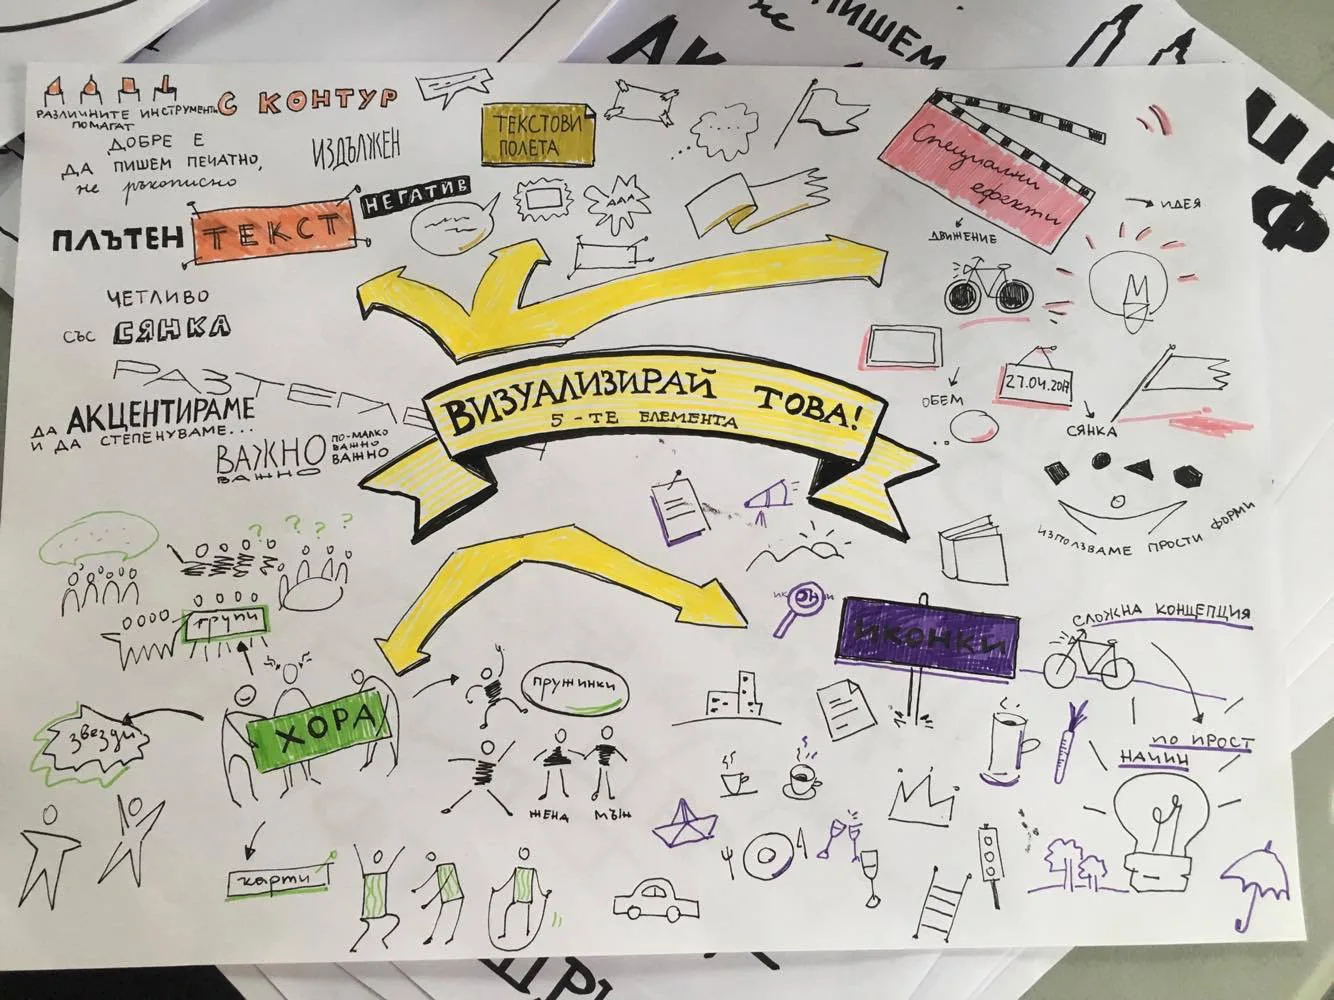 РАЗЛИЧНИТЕ ИНСТРУМЕНТИ
ПОМАГАТ
С КОНТУР
ДОБРЕ Е
ДА ПИШЕМ ПЕЧАТНО,
не ръкописно
ИЗДЪЛЖЕН
ТЕКСТОВИ
ПОЛЕТА
НЕГАТИВ
ПЛЪТЕН
ТЕКСТ
ЧЕТЛИВО
СЪС СЯНКА
РАЗТЕГЛЕН
ДА АКЦЕНТИРАМЕ
И ДА СТЕПЕНУВАМЕ...
ВАЖНО
ВАЖНО
ПО-МАЛКО
ВАЖНО
ВАЖНО
ААА
Специални
ефекти
ДВИЖЕНИЕ
ИДЕЯ
27.04.2017
ОБЕМ
СЯНКА
ИЗПОЛЗВАМЕ ПРОСТИ ФОРМИ
ВИЗУАЛИЗИРАЙ ТОВА!
5-ТЕ ЕЛЕМЕНТА
? ? ? ?
групи
ХОРА
звезди
карти
пружинки
ЖЕНА
МЪЖ
ИКОНКИ
ИКОНКИ
СЛОЖНА КОНЦЕПЦИЯ
ПО ПРОСТ
НАЧИН
ПИШЕМ
не